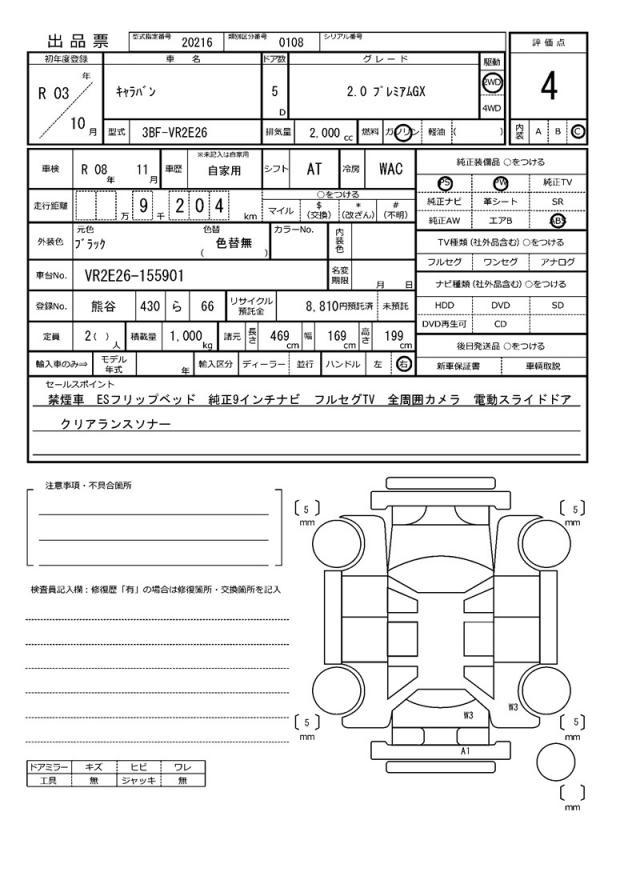 出品票
型式指定番号 20216 類別区分番号 0108 シリアル番号
評価点
初年度登録 車名 ドア数 グレード 駆動
R 03 年 10 月
キャラバン
5 D
2.0 プレミアムGX
2WD
4WD
4
型式 3BF-VR2E26 排気量 2,000 cc 燃料 ガソリン 軽油 ( )
内装 A B C
車検 R 08 年 11 月 車歴 ※未記入は自家用 自家用 シフト AT 冷房 WAC
純正装備品 ○をつける
PS PW 純正TV
純正ナビ 革シート SR
純正AW エアB ABS
走行距離 万 9 千 2 0 4 km
○をつける
マイル $ (交換) * (改ざん) # (不明)
外装色 元色 ブラック 色替 色替無 ( )
カラーNo. 内装色
TV種類 (社外品含む) ○をつける
フルセグ ワンセグ アナログ
車台No. VR2E26-155901 名変期限 月 日
ナビ種類 (社外品含む) ○をつける
HDD DVD SD
DVD再生可 CD
登録No. 熊谷 430 ら 66 リサイクル預託金 8,810円預託済 未預託
定員 2( ) 人 積載量 1,000 kg 諸元 長さ 469 cm 幅 169 cm 高さ 199 cm
後日発送品 ○をつける
新車保証書 車輌取説
輸入車のみ⇒ モデル年式 年 輸入区分 ディーラー 並行 ハンドル 左 右
セールスポイント
禁煙車 ESフリップベッド 純正9インチナビ フルセグTV 全周囲カメラ 電動スライドドア
クリアランスソナー
注意事項・不具合箇所
[ 5 ] mm
[ 5 ] mm
検査員記入欄：修復歴「有」の場合は修復箇所・交換箇所を記入
W3
W3
[ 5 ] mm
[ 5 ] mm
A1
ドアミラー キズ ヒビ ワレ
工具 無 ジャッキ 無
[ ] mm